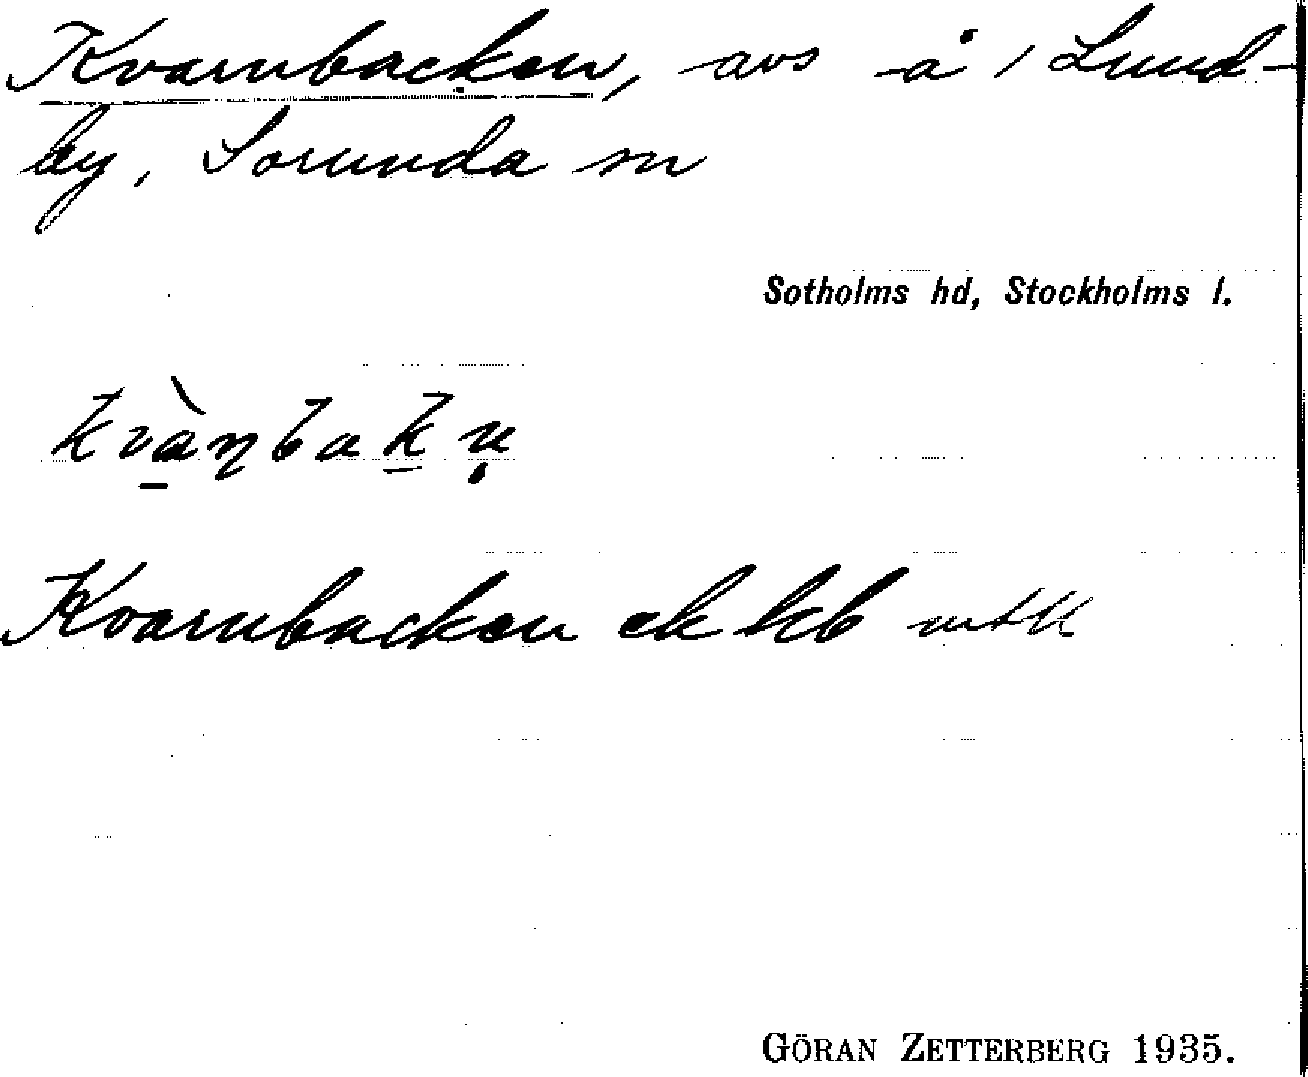 Kvarnbacken, avs å / Lund-
by, Sorunda sn
Sotholms hd, Stockholms l.
kvàṇbakṇ
Kvarnbacken ek kb
GÖRAN ZETTERBERG 1935.